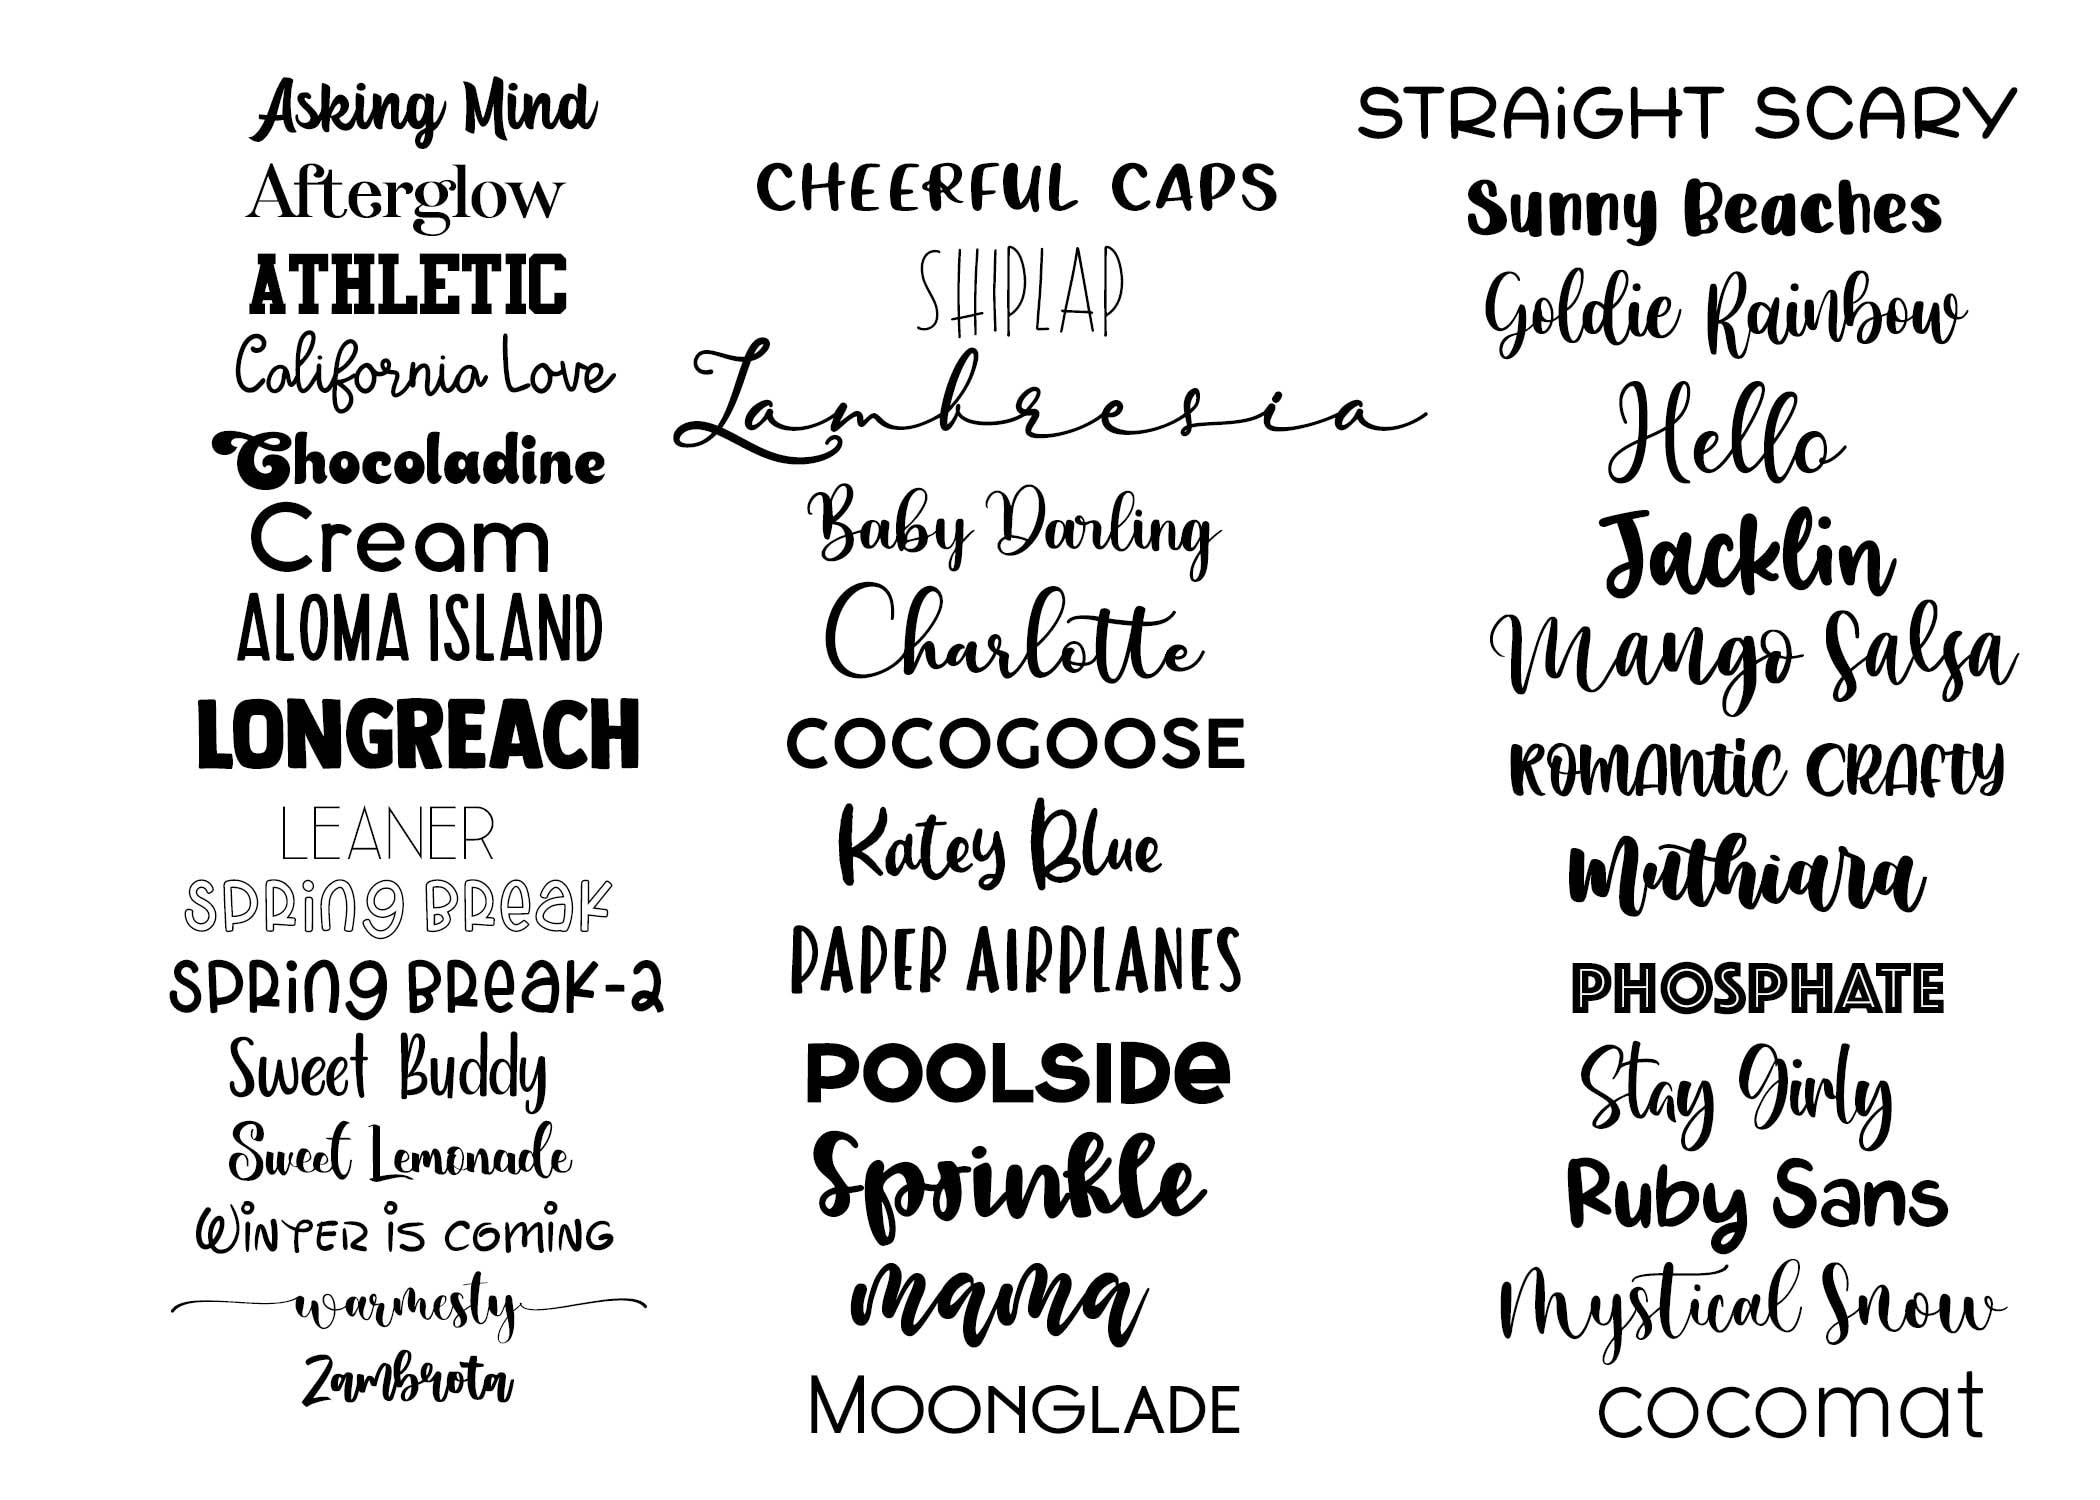 Asking Mind
Afterglow
ATHLETIC
California Love
Chocoladine
Cream
ALOMA ISLAND
LONGREACH
LEANER
SPRing BReaK
SPRing BReaK-2
Sweet Buddy
Sweet Lemonade
Winter is coming
warmesty
Zambrota
CHEERFUL CAPS
SHIPLAP
Lambresia
Baby Darling
Charlotte
COCOGOOSE
Katey Blue
PAPER AIRPLANES
POOLSIDe
Sprinkle
mama
MOONGLADE
STRAiGHT SCARY
Sunny Beaches
Goldie Rainbow
Hello
Jacklin
Mango Salsa
ROMANtiC CRAfty
Muthiara
PHOSPHATE
Stay Girly
Ruby Sans
Mystical Snow
cocomat